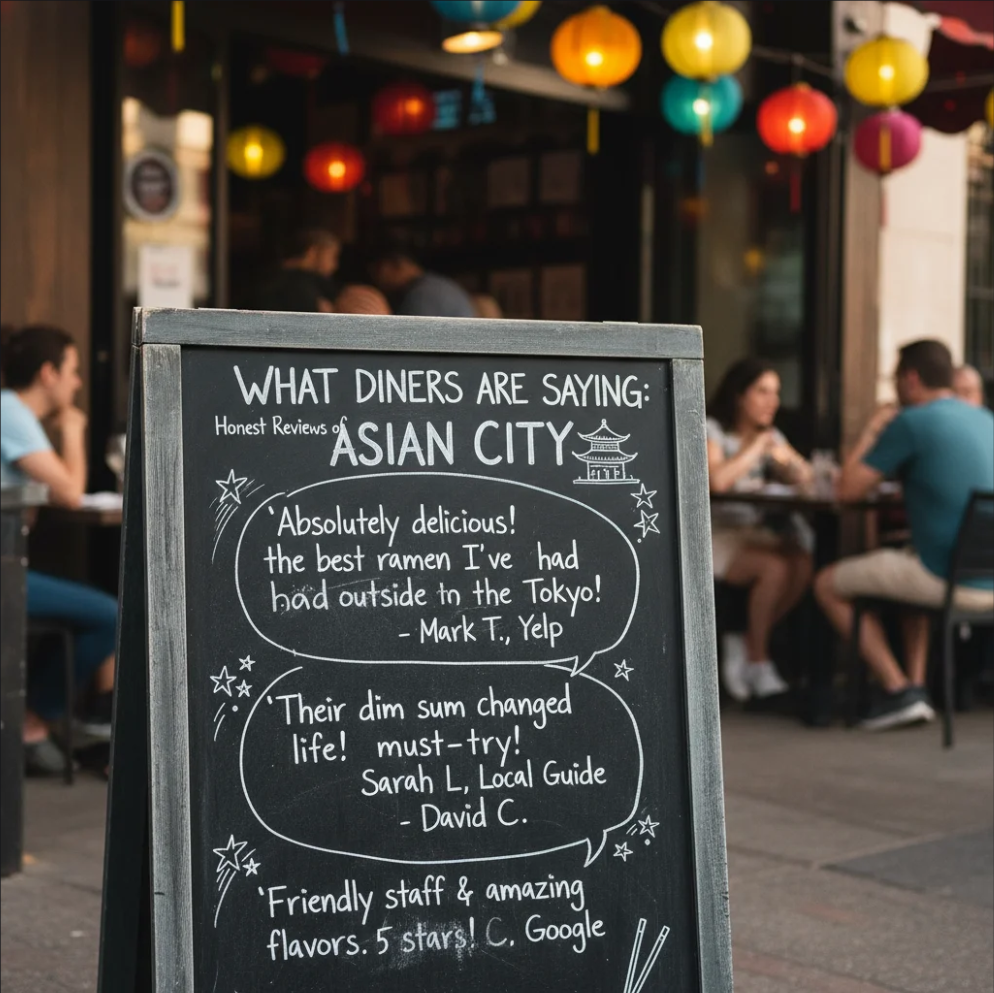 WHAT DINERS ARE SAYING:
Honest Reviews of
ASIAN CITY
'Absolutely delicious!
the best ramen I've had
had outside tn the Tokyo!
- Mark T., Yelp
'Their dim sum changed
life! must-try!
Sarah L, Local Guide
- David C.
'Friendly staff & amazing
flavors. 5 stars! C. Google